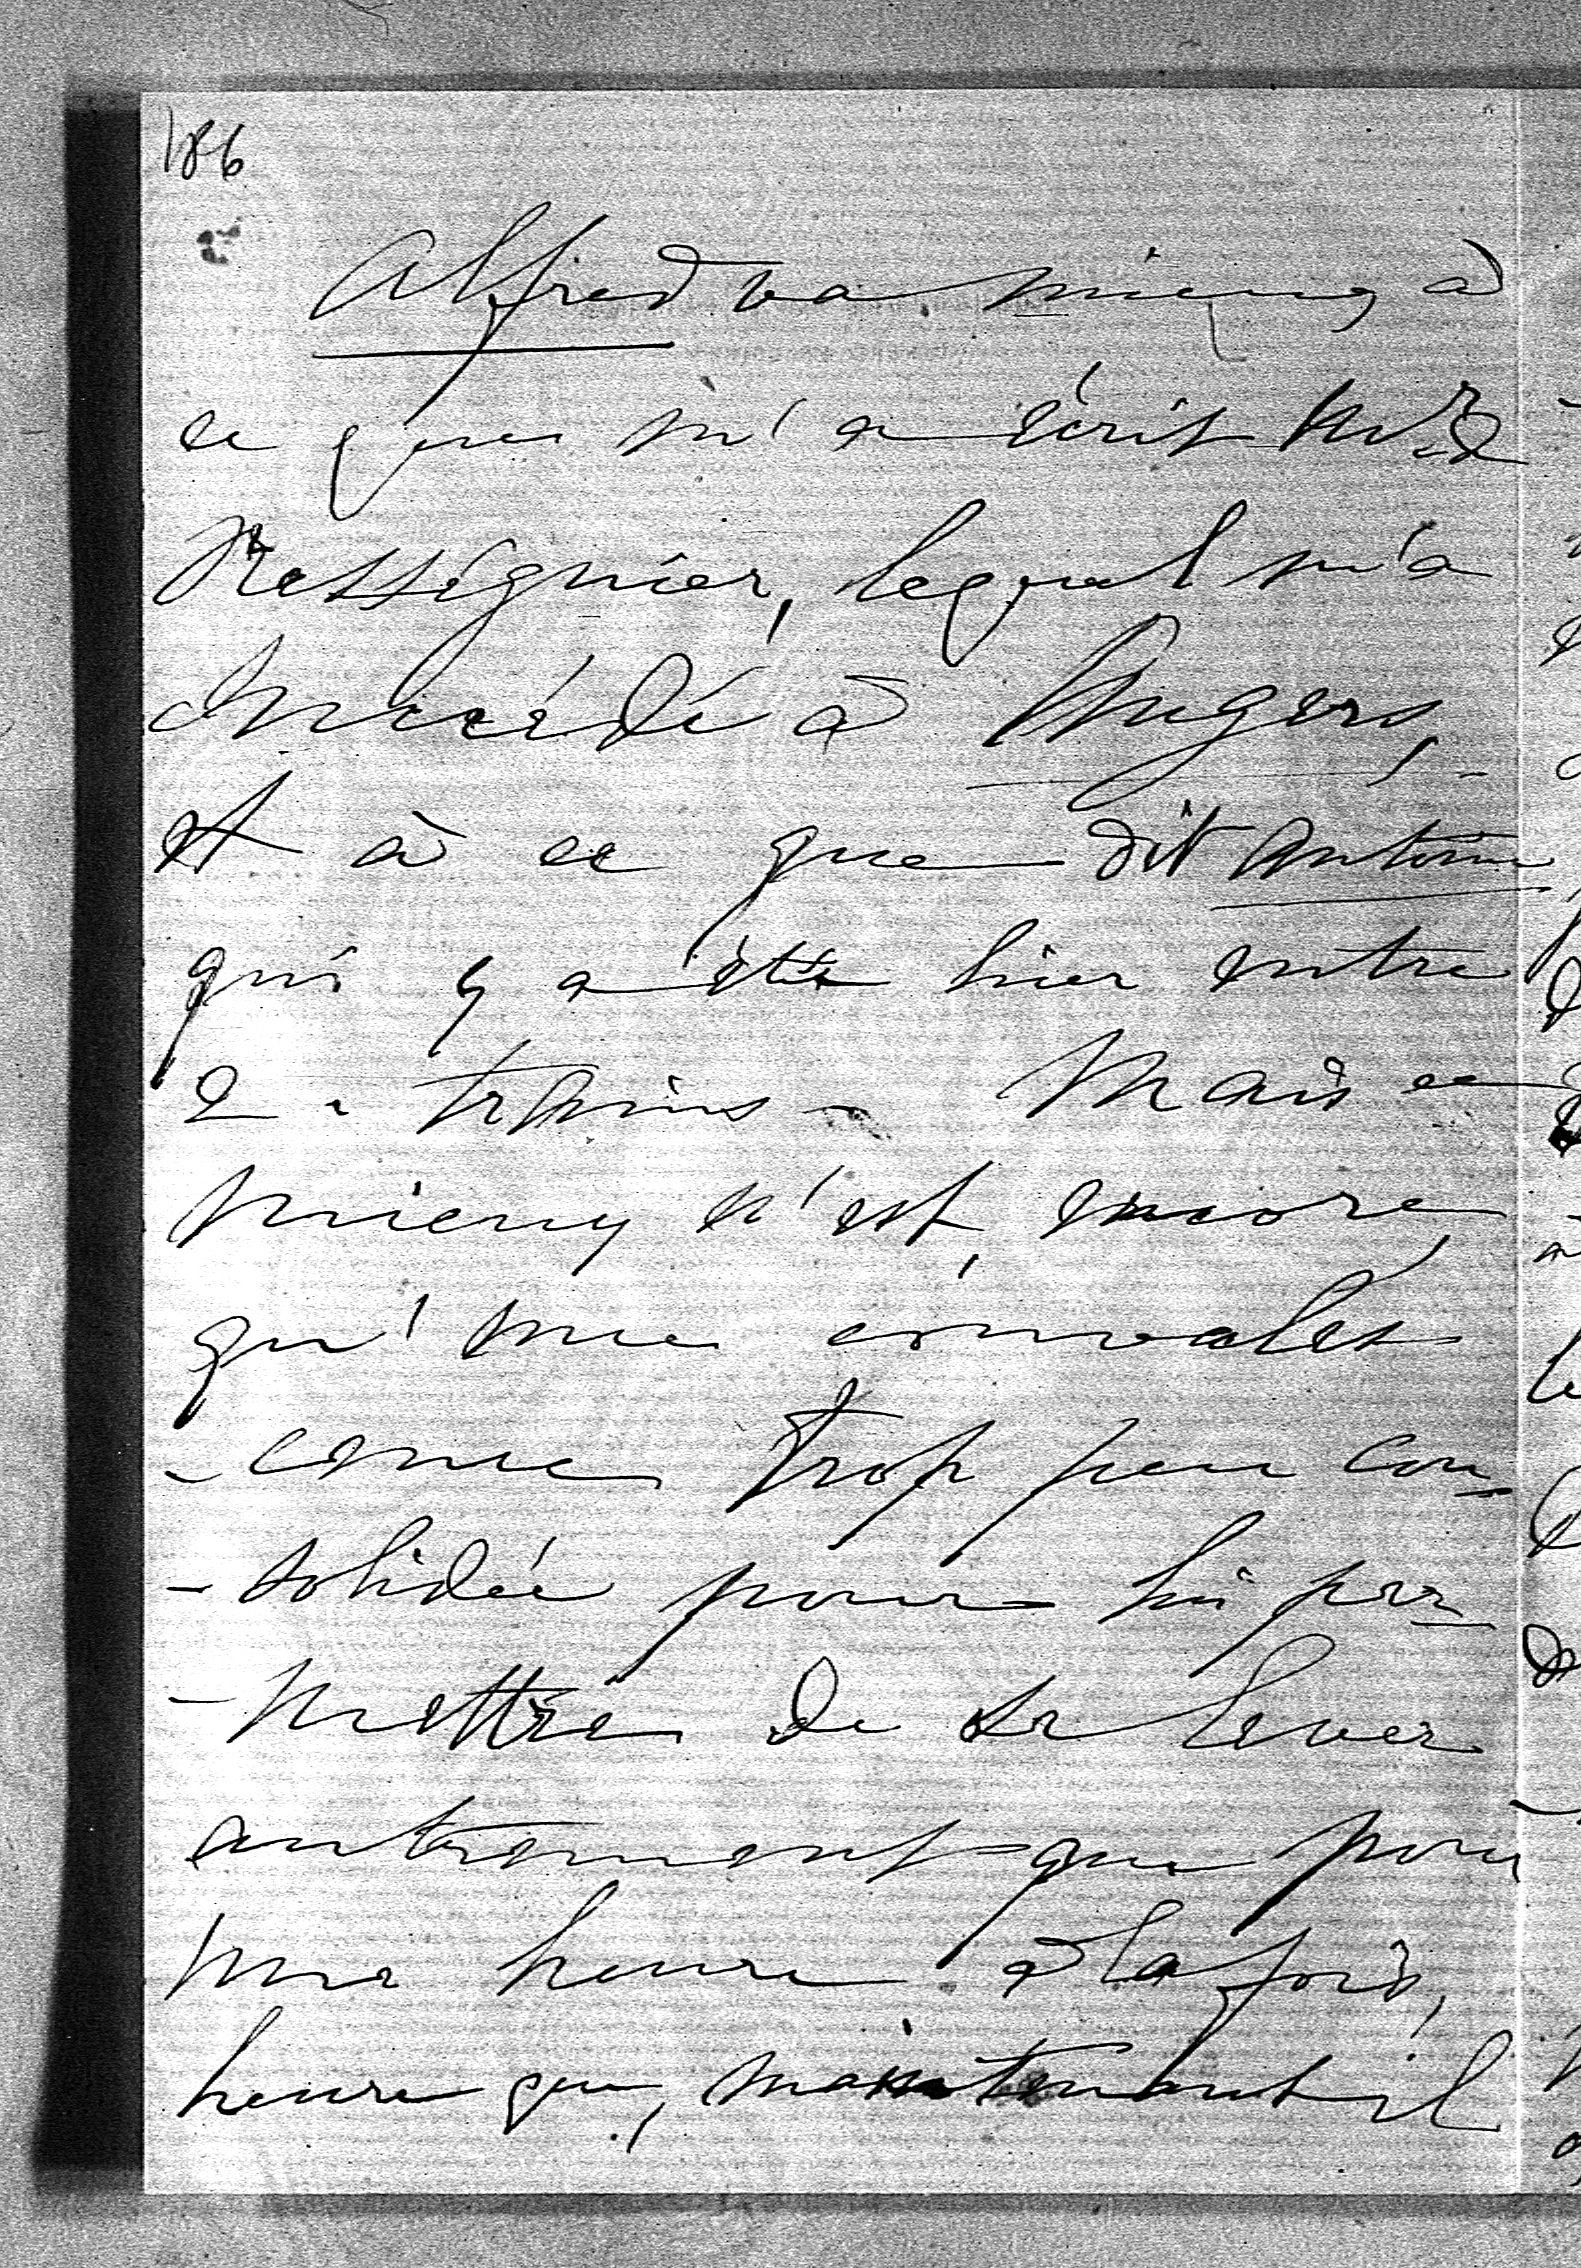 186
Alfred va mieux, à
ce que m'a écrit Mr de
Rességuier, lequel m'a
succédé à Angers,
et à ce que dit Antoine
qui y a été hier entre
2 trains - Mais ce
mieux n'est, encore,
qu'une convales
-cence trop peu con-
-solidée pour lui per-
-mettre de se lever
autrement que pour
une heure à la fois,
heure que, maintenant il